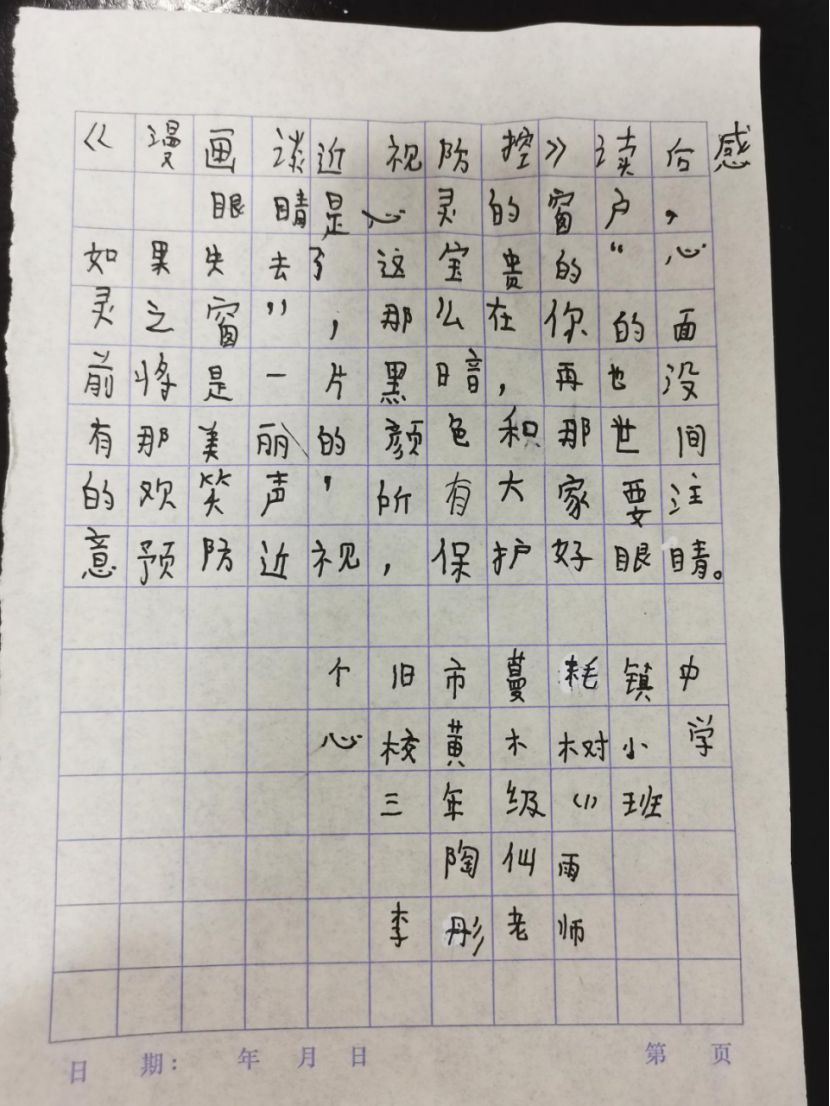 《漫画谈近视防控》读后感
眼睛是心灵的窗户，
如果失去了这宝贵的“心
灵之窗”，那么在你的面
前将是一片黑暗，再也没
有那美丽的颜色和那世间
的欢笑声，所有大家要注
意预防近视，保护好眼睛。
个旧市蔓耗镇中
心校黄木树小学
三年级（1）班
陶仙雨
李彤老师
日期： 年 月 日 第 页